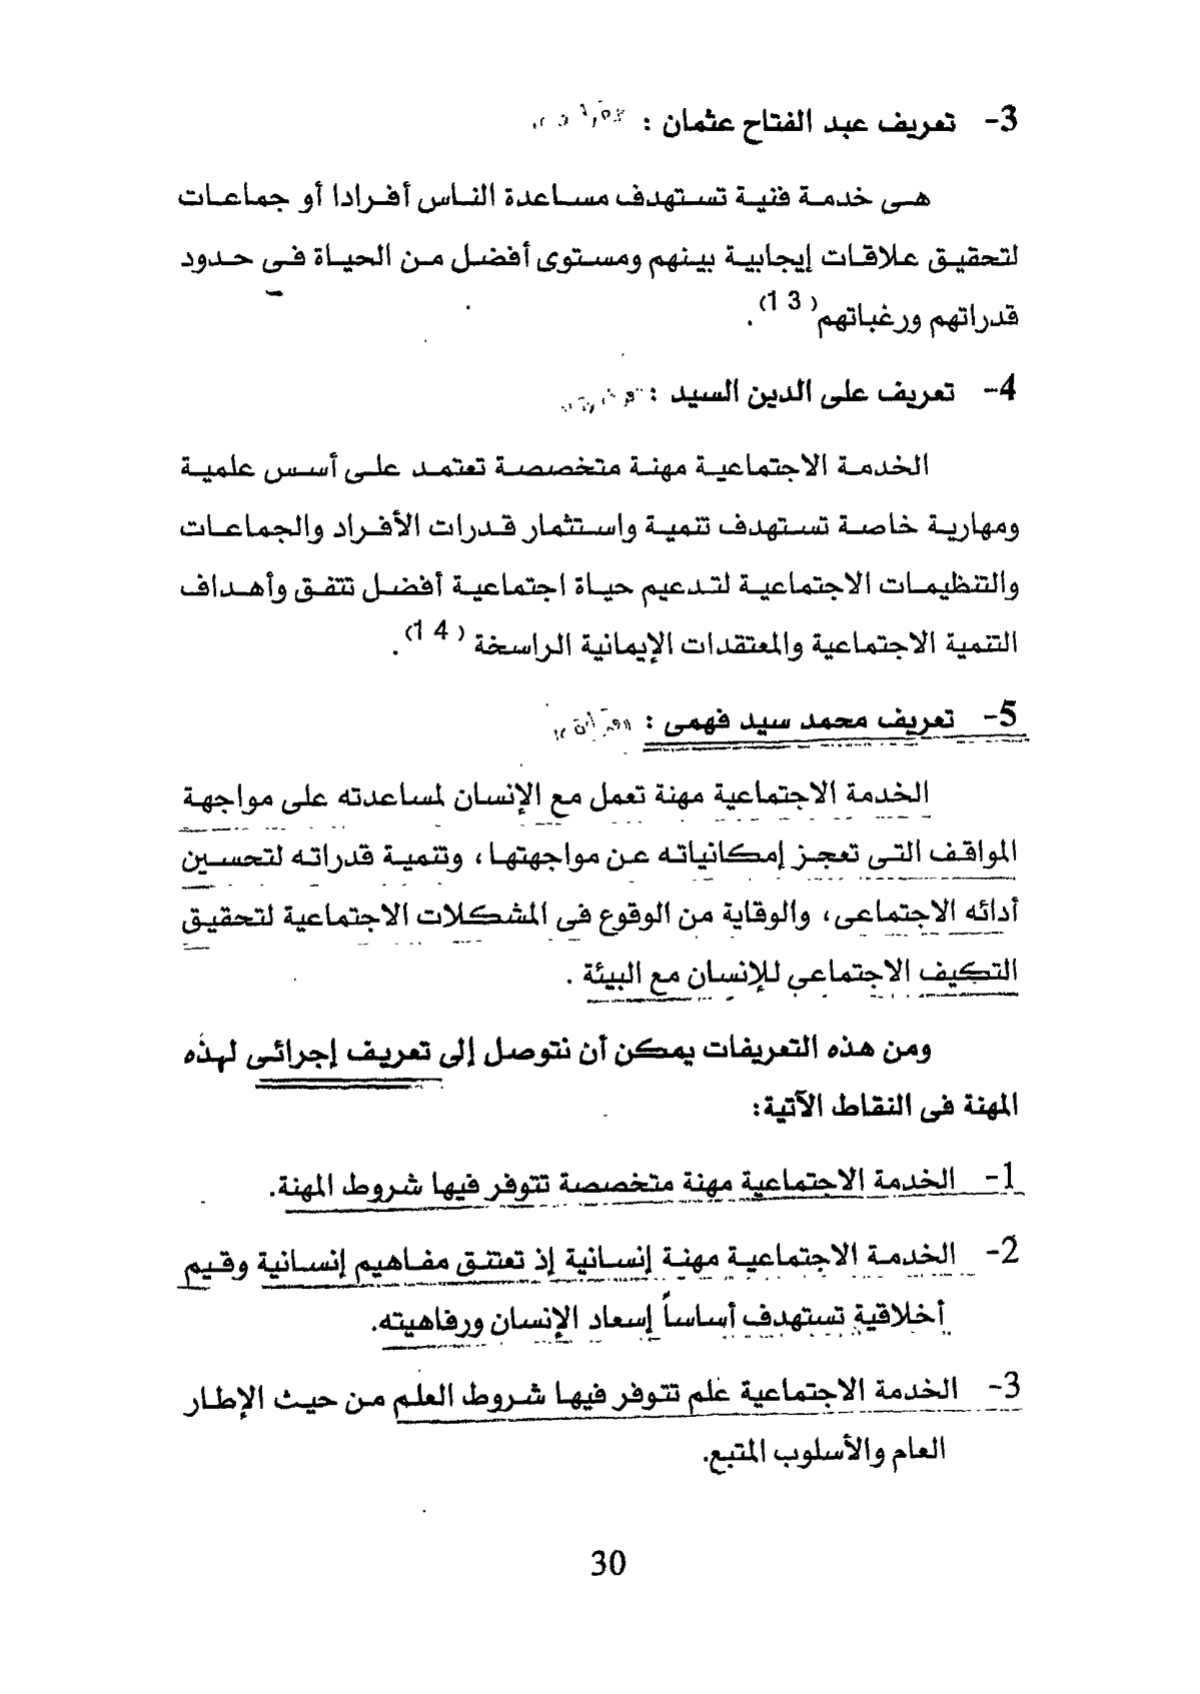 3- تعريف عبد الفتاح عثمان :
هى خدمة فنية تستهدف مساعدة الناس أفرادا أو جماعات
لتحقيق علاقات إيجابية بينهم ومستوى أفضل من الحياة فى حدود
قدراتهم ورغباتهم(13).
4- تعريف على الدين السيد :
الخدمة الاجتماعية مهنة متخصصة تعتمد على أسس علمية
ومهارية خاصة تستهدف تنمية واستثمار قدرات الأفراد والجماعات
والتنظيمات الاجتماعية لتدعيم حياة اجتماعية أفضل تتفق وأهداف
التنمية الاجتماعية والمعتقدات الإيمانية الراسخة (14).
5- تعريف محمد سيد فهمى :
الخدمة الاجتماعية مهنة تعمل مع الإنسان لمساعدته على مواجهة
المواقف التى تعجز إمكانياته عن مواجهتها، وتنمية قدراته لتحسين
أدائه الاجتماعى، والوقاية من الوقوع فى المشكلات الاجتماعية لتحقيق
التكيف الاجتماعى للإنسان مع البيئة .
ومن هذه التعريفات يمكن أن نتوصل إلى تعريف إجرائى لهذه
المهنة فى النقاط الآتية:
1- الخدمة الاجتماعية مهنة متخصصة تتوفر فيها شروط المهنة.
2- الخدمة الاجتماعية مهنة إنسانية إذ تعتنق مفاهيم إنسانية وقيم
أخلاقية تستهدف أساساً إسعاد الإنسان ورفاهيته.
3- الخدمة الاجتماعية علم تتوفر فيها شروط العلم من حيث الإطار
العام والأسلوب المتبع.
30